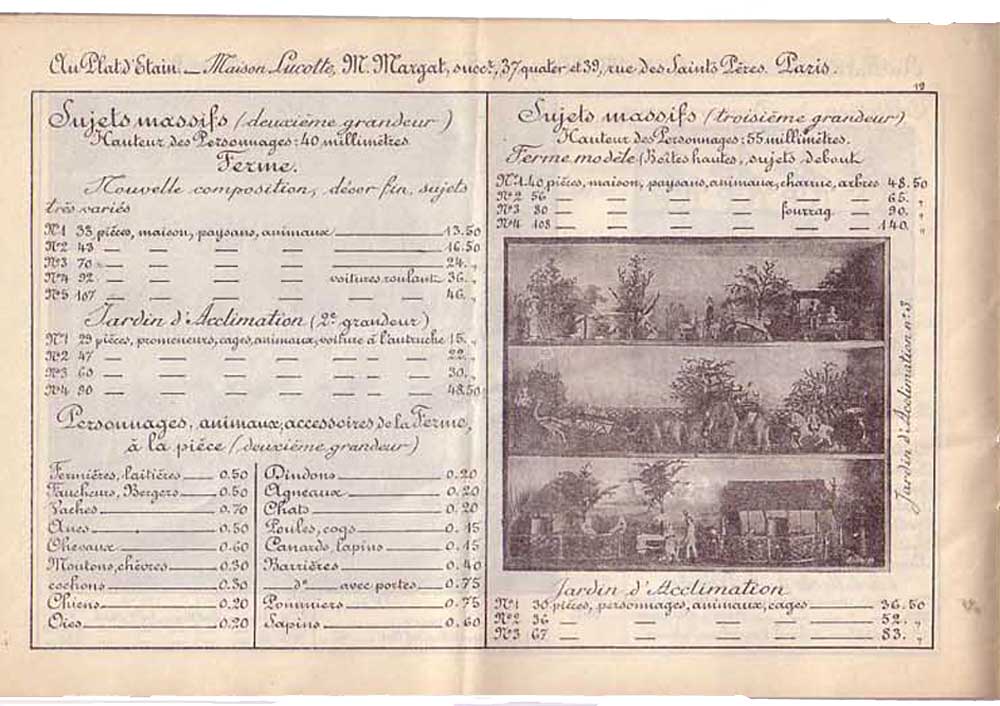 Au Plat d'Etain. — Maison Lucotte, M. Margat, succr, 37 quater et 39, rue des Saints Pères. Paris.
19
Sujets massifs (deuxième grandeur)
Hauteur des Personnages: 40 millimètres
Ferme.
Nouvelle composition, décor fin, sujets
très variés
N°1 33 pièces, maison, paysans, animaux 13.50
N°2 43 — — — — 16.50
N°3 70 — — — — 24. „
N°4 92 — — — voitures roulant. 36. „
N°5 107 — — — — — 46. „
Jardin d'Acclimation (2e grandeur)
N°1 29 pièces, promeneurs, cages, animaux, voiture à l'autruche 15. „
N°2 47 — — — — — — 22. „
N°3 60 — — — — — — 30. „
N°4 90 — — — — — — 48.50
Personnages, animaux, accessoires de la Ferme,
à la pièce (deuxième grandeur)
Fermières, laitières 0.50
Faucheurs, Bergers 0.50
Vaches 0.70
Anes 0.50
Chevaux 0.60
Moutons, chèvres 0.30
cochons 0.30
Chiens 0.20
Oies 0.20
Dindons 0.20
Agneaux 0.20
Chats 0.20
Poules, coqs 0.15
Canards, lapins 0.15
Barrières 0.40
d° avec portes 0.75
Pommiers 0.75
Sapins 0.60
Sujets massifs (troisième grandeur)
Hauteur des Personnages: 55 millimètres.
Ferme modèle (Boîtes hautes, sujets debout
N°1 40 pièces, maison, paysans, animaux, charrue, arbres 48.50
N°2 56 — — — — — 65. „
N°3 80 — — — fourrag. — 90. „
N°4 108 — — — — — 140. „
Jardin d'Acclimation n°3
Jardin d'Acclimation
N°1 30 pièces, personnages, animaux, cages 36.50
N°2 36 — — — — 52. „
N°3 67 — — — — 83. „